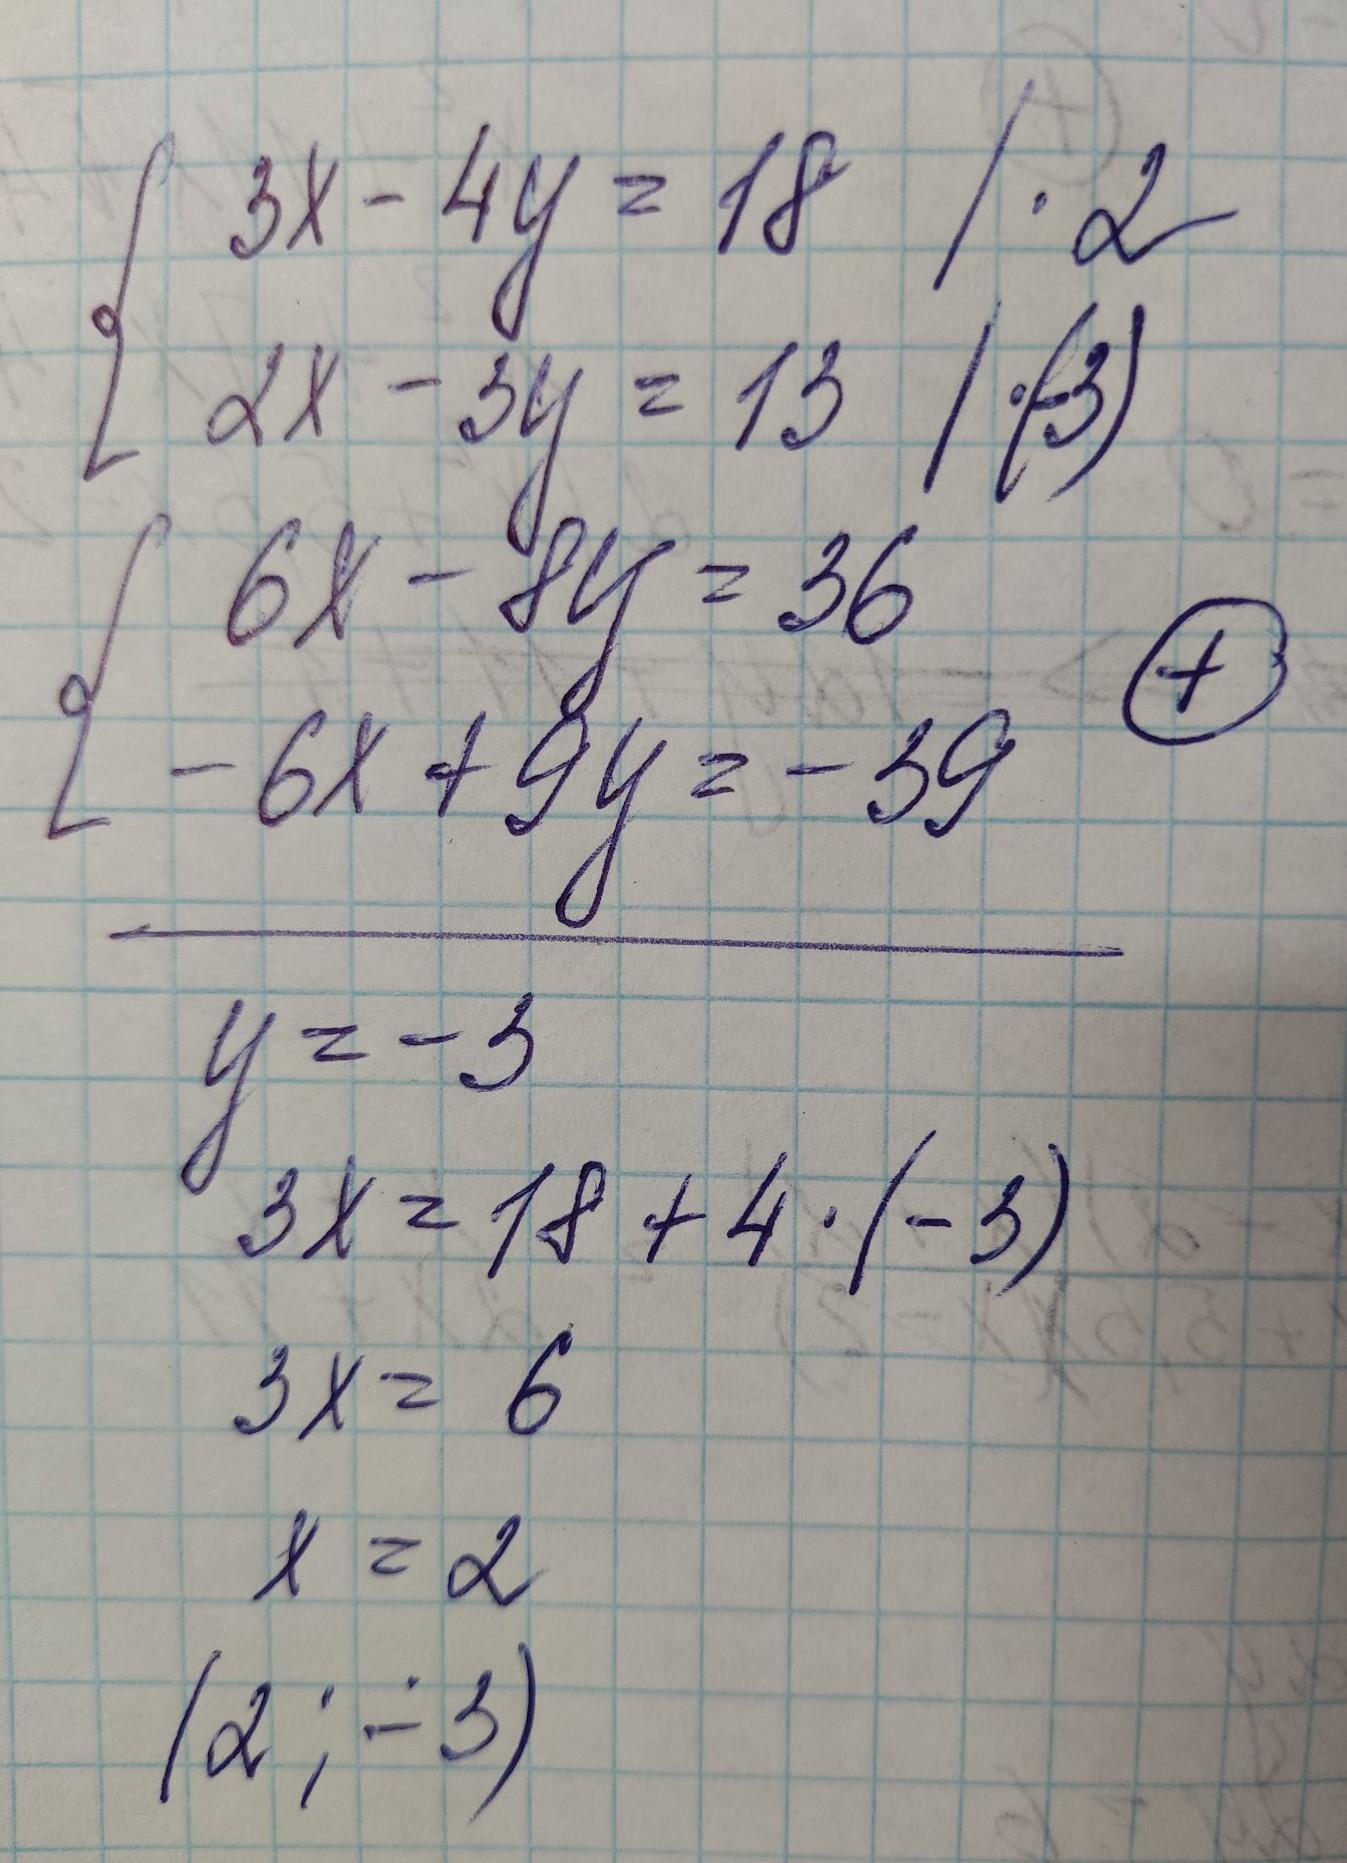 3x - 4y = 18 / · 2
2x - 3y = 13 / · (-3)
6x - 8y = 36
+
-6x + 9y = -39
y = -3
3x = 18 + 4 · (-3)
3x = 6
x = 2
(2 ; -3)